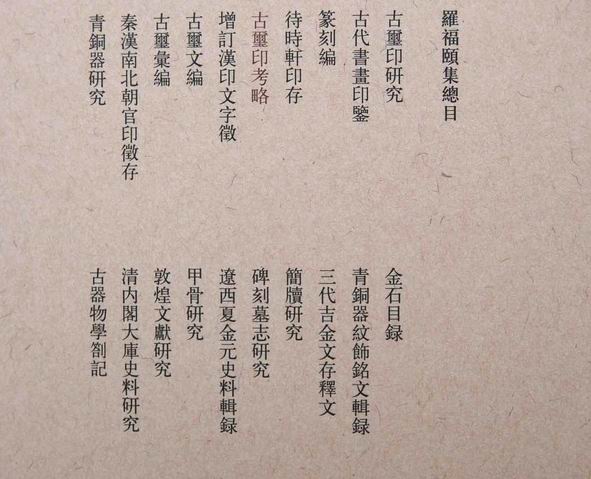 羅福頤集總目
古璽印研究
古代書畫印鑒
篆刻編
待時軒印存
古璽印考略
增訂漢印文字徵
古璽文編
古璽彙編
秦漢南北朝官印徵存
青銅器研究
金石目録
青銅器紋飾銘文輯録
三代吉金文存釋文
簡牘研究
碑刻墓志研究
遼西夏金元史料輯録
甲骨研究
敦煌文獻研究
清内閣大庫史料研究
古器物學劄記